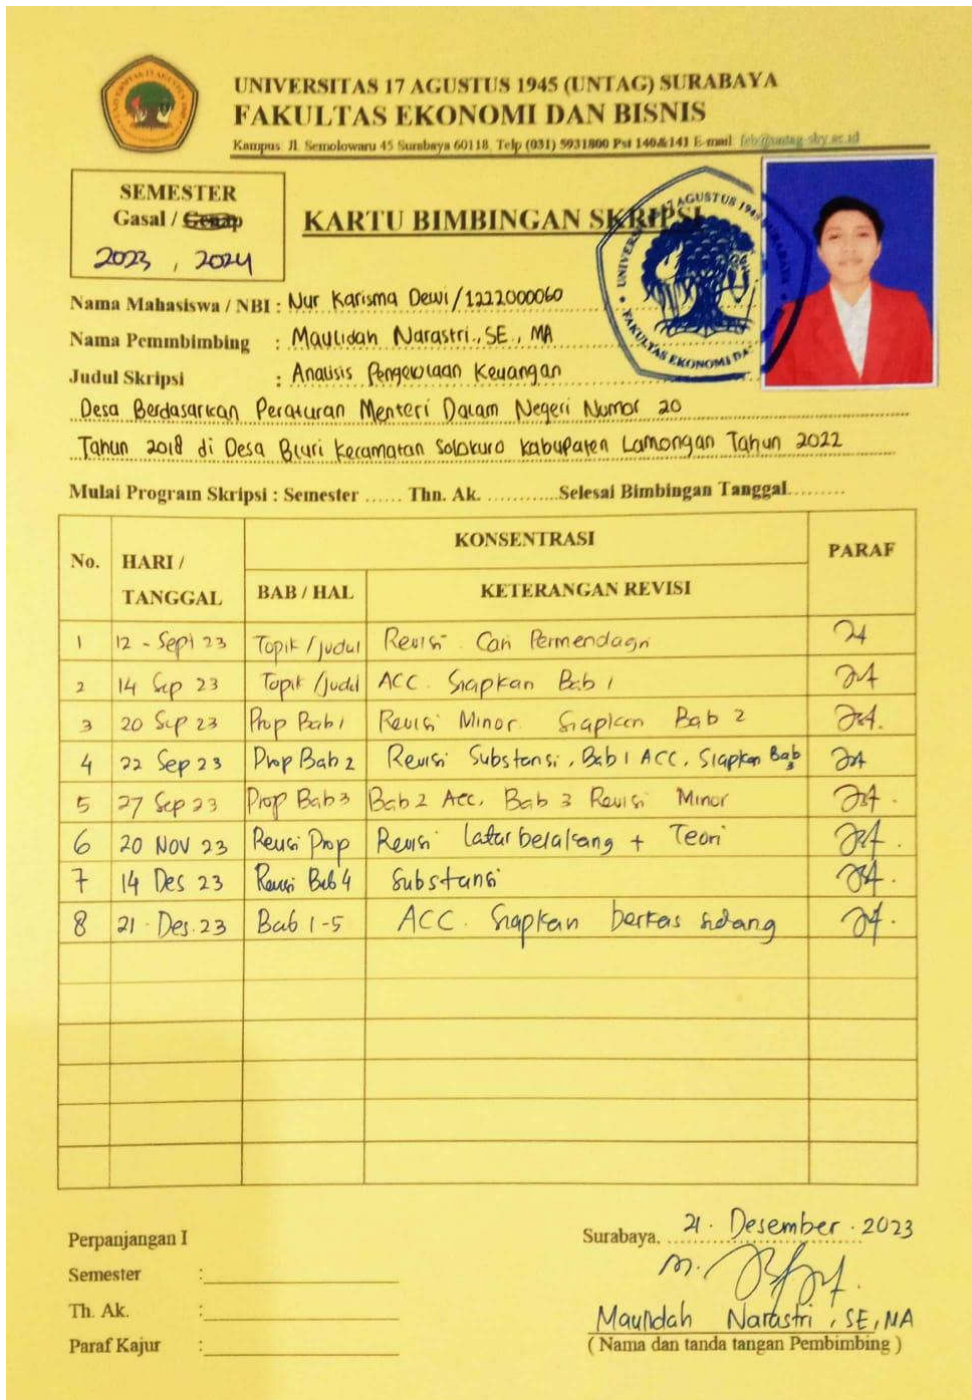 UNIVERSITAS 17 AGUSTUS 1945 (UNTAG) SURABAYA
FAKULTAS EKONOMI DAN BISNIS
Kampus Jl. Semolowaru 45 Surabaya 60118, Telp (031) 5931800 Pst 140&141 E-mail: feb@untag-sby.ac.id
SEMESTER
Gasal / Genap
2023 , 2024
KARTU BIMBINGAN SKRIPSI
Nama Mahasiswa / NBI : Nur Karisma Dewi/1222000060
Nama Pemmbimbing : Maulidah Narastri., SE., MA
Judul Skripsi : Analisis Pengelolaan Keuangan
Desa Berdasarkan Peraturan Menteri Dalam Negeri Nomor 20
Tahun 2018 di Desa Bluri Kecamatan Solokuro Kabupaten Lamongan Tahun 2022
Mulai Program Skripsi : Semester ...... Thn. Ak. ............Selesai Bimbingan Tanggal.........
No. HARI / TANGGAL KONSENTRASI PARAF
BAB / HAL KETERANGAN REVISI
1 12 - Sept 23 Topik / judul Revisi. Cari Permendagri
2 14 Sep 23 Topik /Judul ACC. Siapkan Bab 1
3 20 Sep 23 Prop Bab 1 Revisi Minor. Siapkan Bab 2
4 22 Sep 23 Prop Bab 2 Revisi Substansi, Bab 1 ACC, Siapkan Bab 3
5 27 Sep 23 Prop Bab 3 Bab 2 Acc, Bab 3 Revisi Minor
6 20 NOV 23 Revisi Prop Revisi Latar belakang + Teori
7 14 Des 23 Revisi Bab 4 Substansi
8 21 Des. 23 Bab 1-5 ACC. Siapkan berkas sidang
Perpanjangan I
Semester :
Th. Ak. :
Paraf Kajur :
Surabaya, 21. Desember. 2023
Maulidah Narastri, SE, MA
( Nama dan tanda tangan Pembimbing )